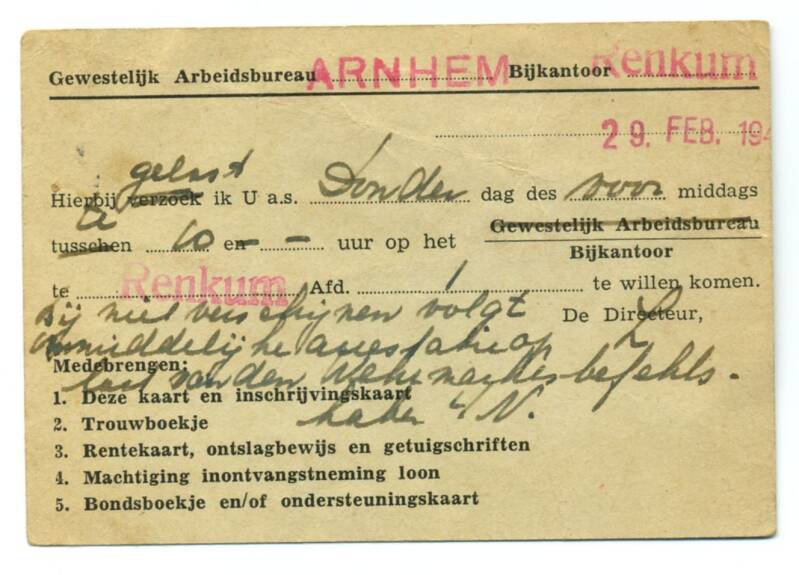 Gewestelijk Arbeidsbureau ARNHEM Bijkantoor Renkum
29. FEB. 194
gelast
Hierbij verzoek ik U a.s. Donder dag des voor middags
à
tusschen 10 en - - uur op het Gewestelijk Arbeidsbureau
Bijkantoor
te Renkum Afd. 1 te willen komen.
Bij niet verschijnen volgt
De Directeur,
onmiddelijke arrestatie op
Medebrengen:
last van den Wehrmachtsbefehls-
1. Deze kaart en inschrijvingskaart
haber i/N.
2. Trouwboekje
3. Rentekaart, ontslagbewijs en getuigschriften
4. Machtiging inontvangstneming loon
5. Bondsboekje en/of ondersteuningskaart